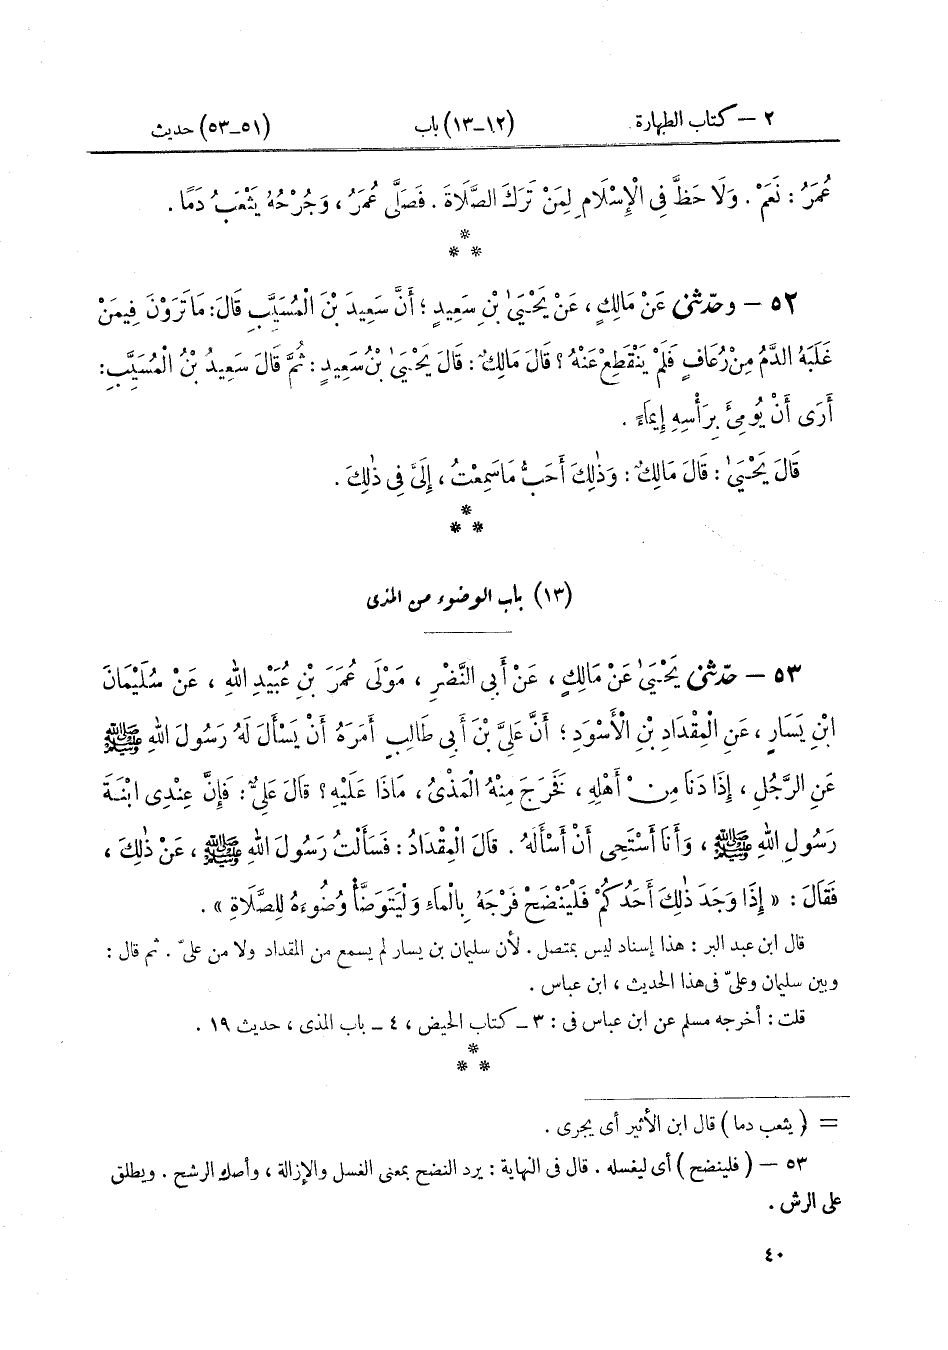 ٢ — كتاب الطهارة (١٢–١٣) باب (٥١–٥٣) حديث
عُمَرُ : نَعَمْ . وَلَا حَظَّ فِى الْإِسْلَامِ لِمَنْ تَرَكَ الصَّلَاةَ . فَصَلَّى عُمَرُ ، وَجُرْحُهُ يَثْعَبُ دَمًا .
*
* *
٥٢ — وحدّثنى عَنْ مَالِكٍ ، عَنْ يَحْيَىٰ بْنِ سَعِيدٍ ؛ أَنَّ سَعِيدَ بْنَ الْمُسَيَّبِ قَالَ : مَا تَرَوْنَ فِيمَنْ
غَلَبَهُ الدَّمُ مِنْ رُعَافٍ فَلَمْ يَنْقَطِعْ عَنْهُ ؟ قَالَ مَالِكٌ : قَالَ يَحْيَىٰ بْنُ سَعِيدٍ : ثُمَّ قَالَ سَعِيدُ بْنُ الْمُسَيَّبِ :
أَرَى أَنْ يُومِئَ بِرَأْسِهِ إِيمَاءً .
قَالَ يَحْيَىٰ : قَالَ مَالِكٌ : وَذٰلِكَ أَحَبُّ مَا سَمِعْتُ ، إِلَىَّ فِى ذٰلِكَ .
*
* *
(١٣) باب الوضوء من المذى
٥٣ — حدّثنى يَحْيَىٰ عَنْ مَالِكٍ ، عَنْ أَبِى النَّضْرِ ، مَوْلَى عُمَرَ بْنِ عُبَيْدِ اللهِ ، عَنْ سُلَيْمَانَ
ابْنِ يَسَارٍ ، عَنِ الْمِقْدَادِ بْنِ الْأَسْوَدِ ؛ أَنَّ عَلِىَّ بْنَ أَبِى طَالِبٍ أَمَرَهُ أَنْ يَسْأَلَ لَهُ رَسُولَ اللهِ ﷺ
عَنِ الرَّجُلِ ، إِذَا دَنَا مِنْ أَهْلِهِ ، فَخَرَجَ مِنْهُ الْمَذْىُ ، مَاذَا عَلَيْهِ ؟ قَالَ عَلِىٌّ : فَإِنَّ عِنْدِى ابْنَةَ
رَسُولِ اللهِ ﷺ ، وَأَنَا أَسْتَحِى أَنْ أَسْأَلَهُ . قَالَ الْمِقْدَادُ : فَسَأَلْتُ رَسُولَ اللهِ ﷺ ، عَنْ ذٰلِكَ ،
فَقَالَ : « إِذَا وَجَدَ ذٰلِكَ أَحَدُكُمْ فَلْيَنْضَحْ فَرْجَهُ بِالْمَاءِ وَلْيَتَوَضَّأْ وُضُوءَهُ لِلصَّلَاةِ » .
قال ابن عبد البر : هذا إسناد ليس بمتصل . لأن سليمان بن يسار لم يسمع من المقداد ولا من علىّ . ثم قال :
وبين سليمان وعلىّ فى هذا الحديث ، ابن عباس .
قلت : أخرجه مسلم عن ابن عباس فى : ٣ – كتاب الحيض ، ٤ – باب المذى ، حديث ١٩ .
*
* *
= ( يثعب دما ) قال ابن الأثير أى يجرى .
٥٣ — ( فلينضح ) أى ليغسله . قال فى النهاية : يرد النضح بمعنى الغسل والإزالة ، وأصله الرشح . ويطلق
على الرش .
٤٠